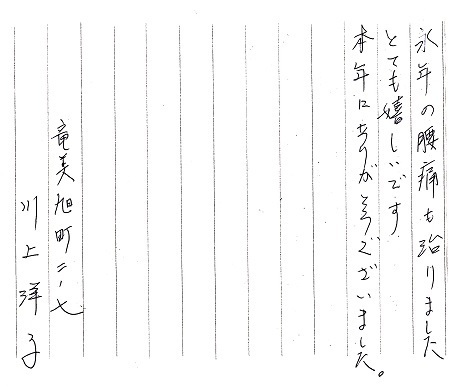 永年の腰痛も治りました
とても嬉しいです
本年にありがとうございました。
竜美旭町二ー七
川上洋子